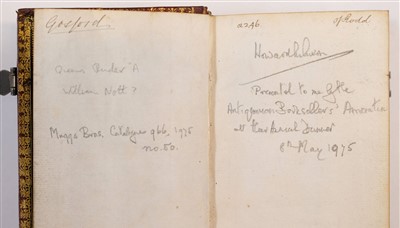 Gosford.
Queens' Binder A
William Nott?
Maggs Bros. Catalogue 966, 1975
no. 50.
a246.
Presented to me by the
Antiquarian Booksellers' Association
at their Annual Dinner
8th May 1975